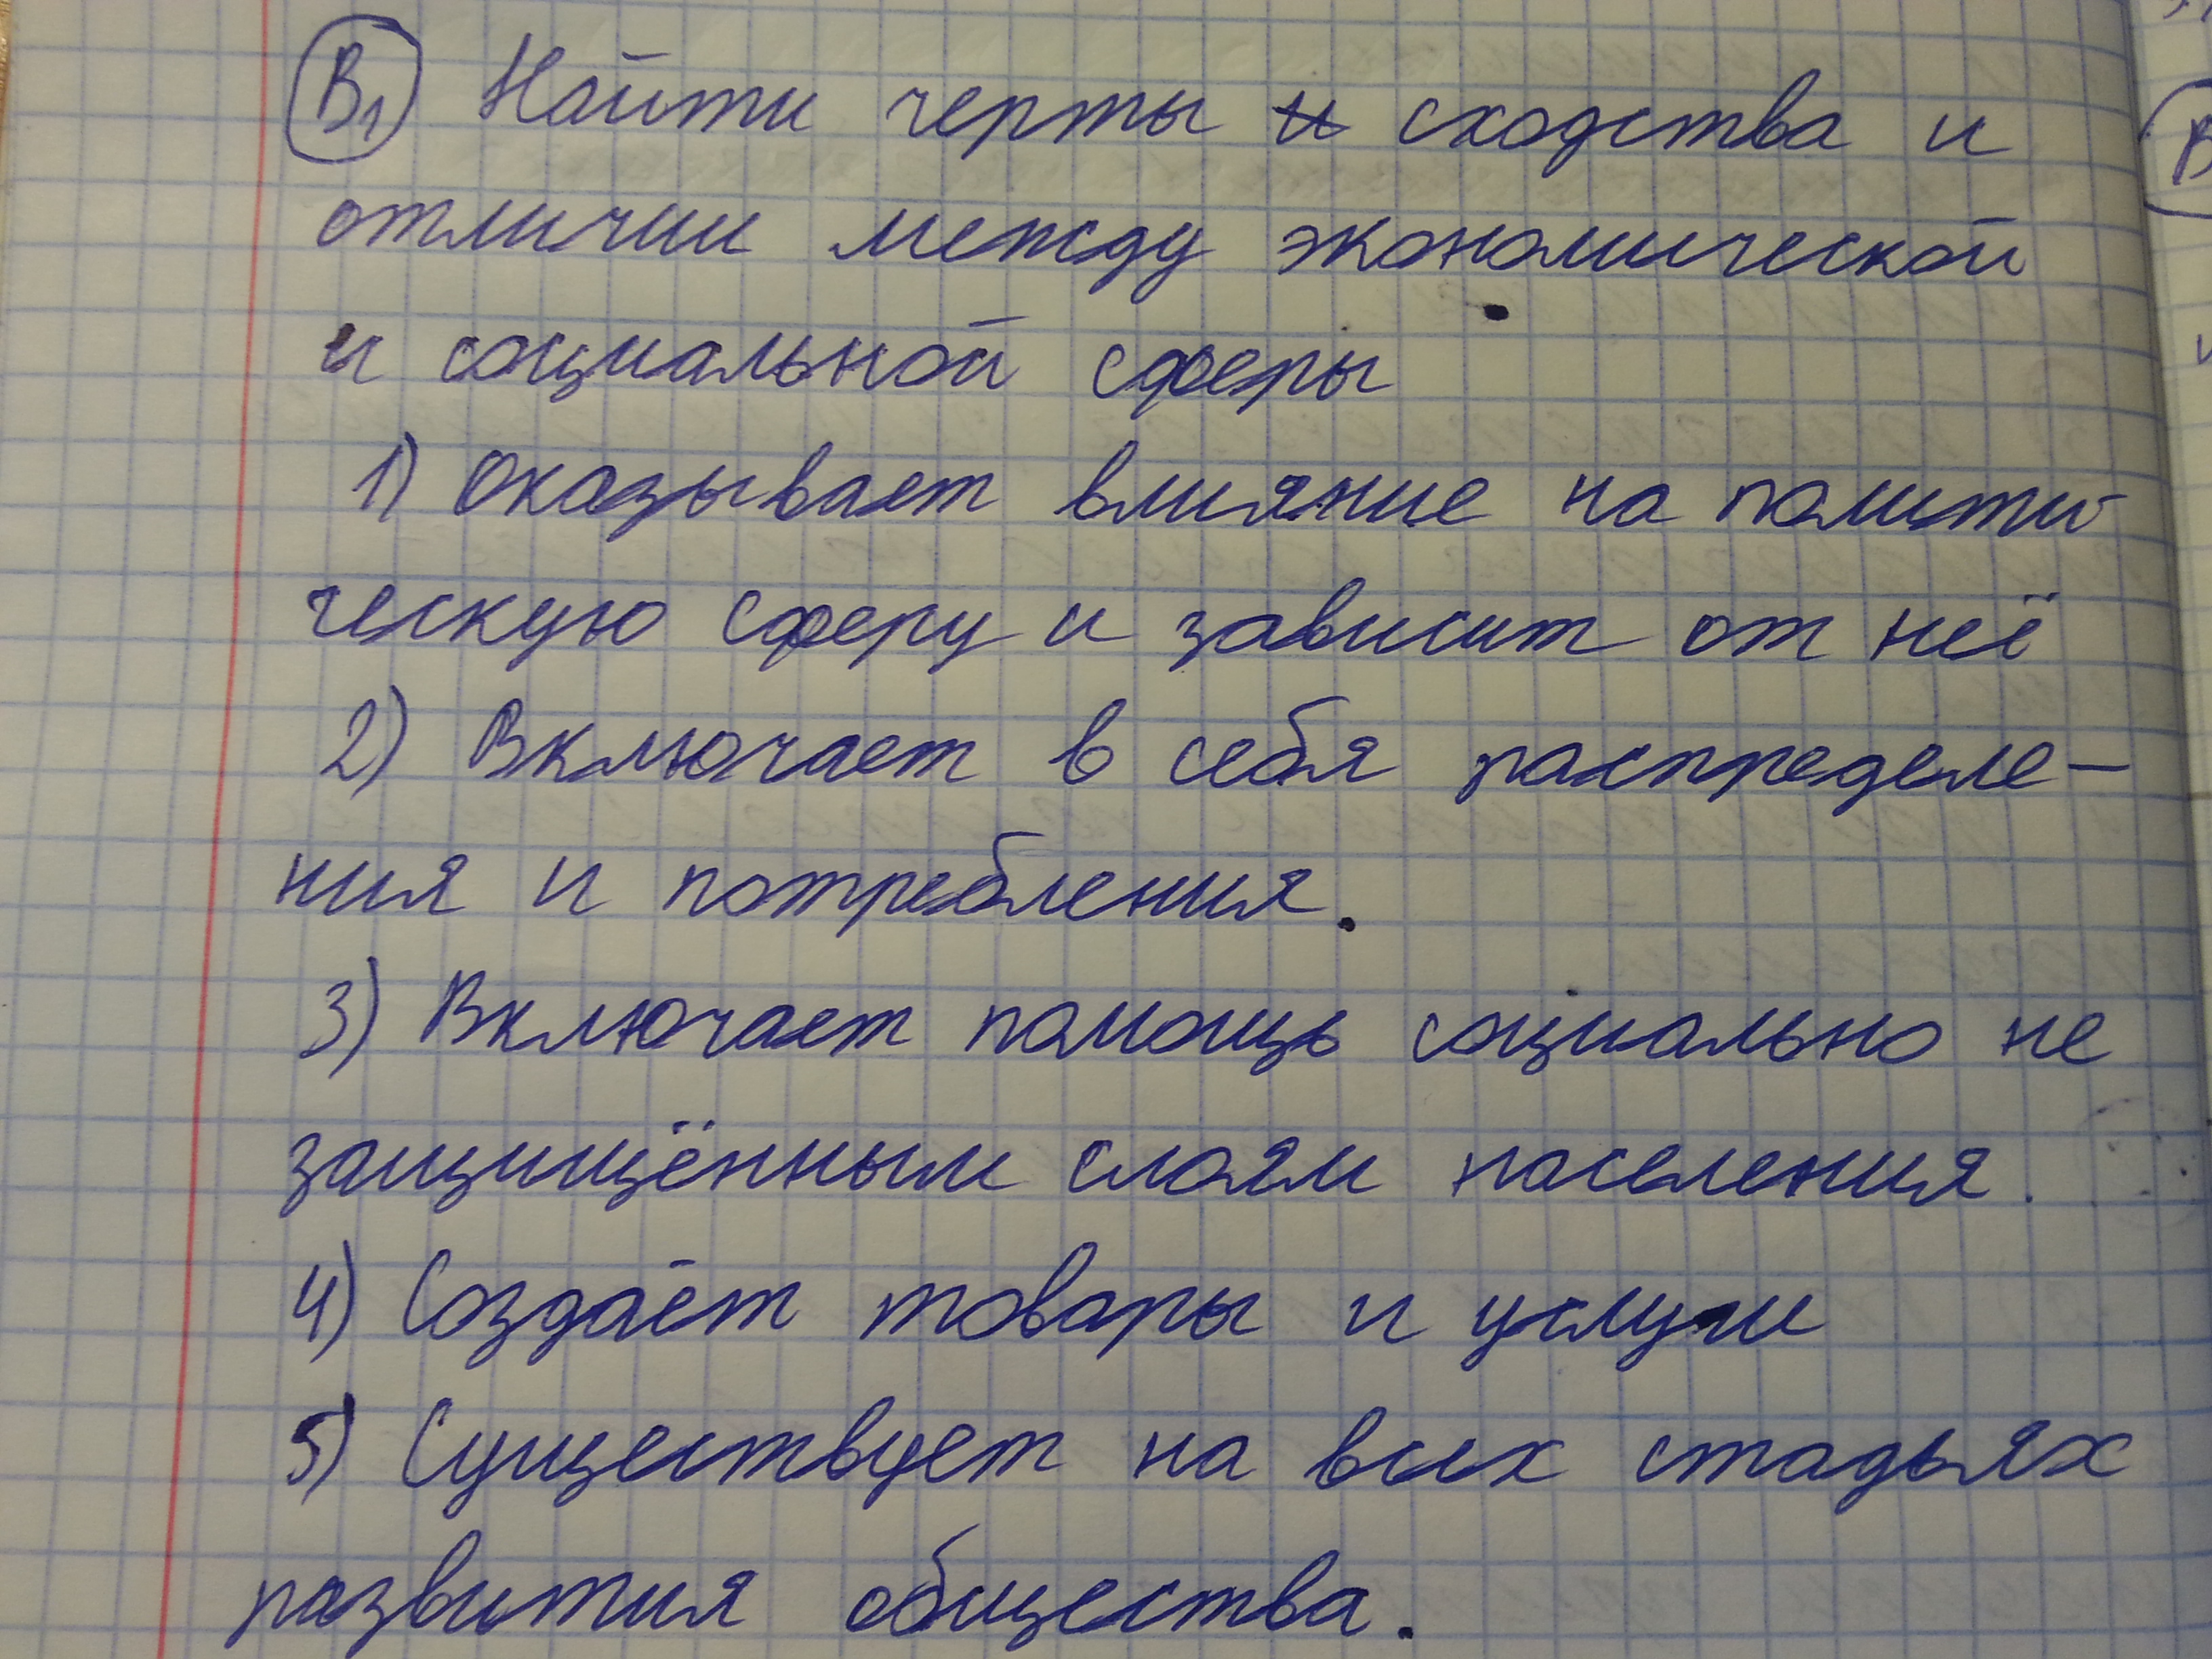 В1) Найти черты и сходства и
отличии между экономической
и социальной сферы
1) Оказывает влияние на полити-
ческую сферу и зависит от неё
2) Включает в себя распределе-
ния и потребления.
3) Включает помощь социально не
защищённым слоям населения.
4) Создаёт товары и услуги
5) Существует на всех стадьях
развития общества.